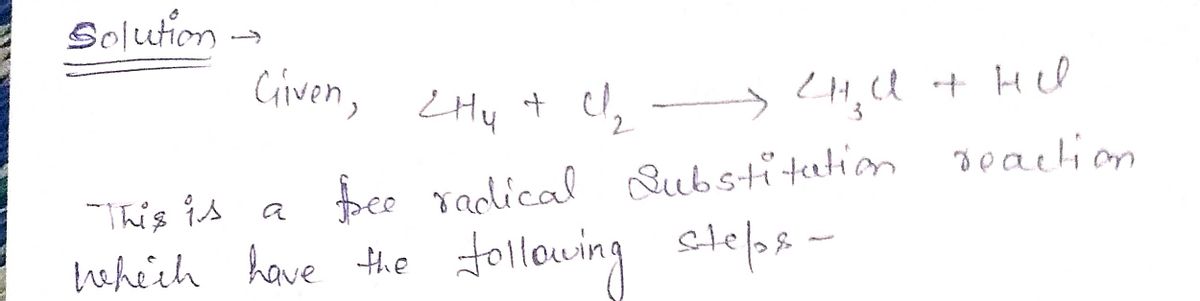 Solution →
Given, CH₄ + Cl₂ ⟶ CH₃Cl + HCl
This is a free radical Substitution reaction
which have the following steps -